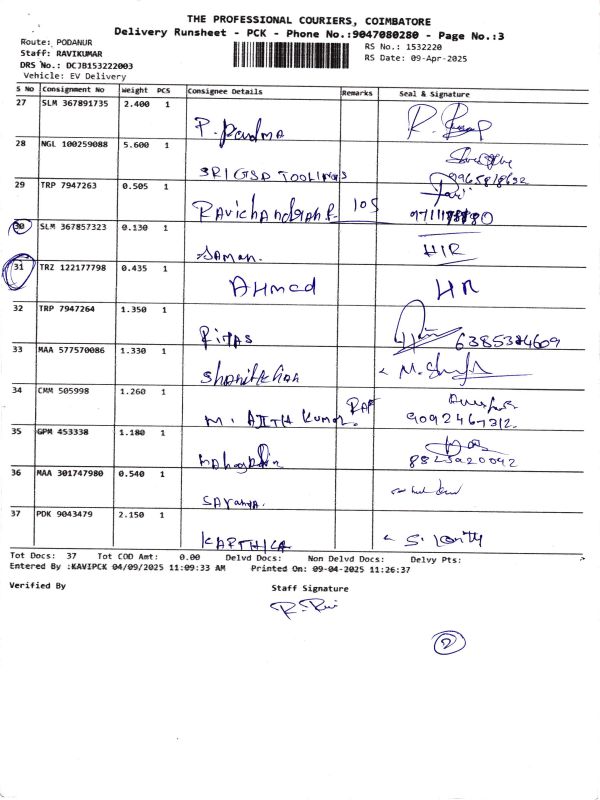 THE PROFESSIONAL COURIERS, COIMBATORE
Delivery Runsheet - PCK - Phone No.:9047080280 - Page No.:3
Route: PODANUR
Staff: RAVIKUMAR
DRS No.: DCJB153222003
Vehicle: EV Delivery
RS No.: 1532220
RS Date: 09-Apr-2025
S No Consignment No Weight PCS Consignee Details Remarks Seal & Signature
27 SLM 367891735 2.400 1 P. Padma
28 NGL 100259088 5.600 1 SRI GSD TOOLINGS
29 TRP 7947263 0.505 1 Ravichandran 105
30 SLM 367857323 0.130 1 Saman. HR
31 TRZ 122177798 0.435 1 AHmed HR
32 TRP 7947264 1.350 1 RiTAS 6385384609
33 MAA 577570086 1.330 1
34 CMM 505998 1.260 1 M. AJITH Kumar. 9092467312
35 GPM 453338 1.180 1 8825920092
36 MAA 301747980 0.540 1
37 PDK 9043479 2.150 1 KARTHICA
Tot Docs: 37 Tot COD Amt: 0.00 Delvd Docs: Non Delvd Docs: Delvy Pts:
Entered By :KAVIPCK 04/09/2025 11:09:33 AM Printed On: 09-04-2025 11:26:37
Verified By Staff Signature
2